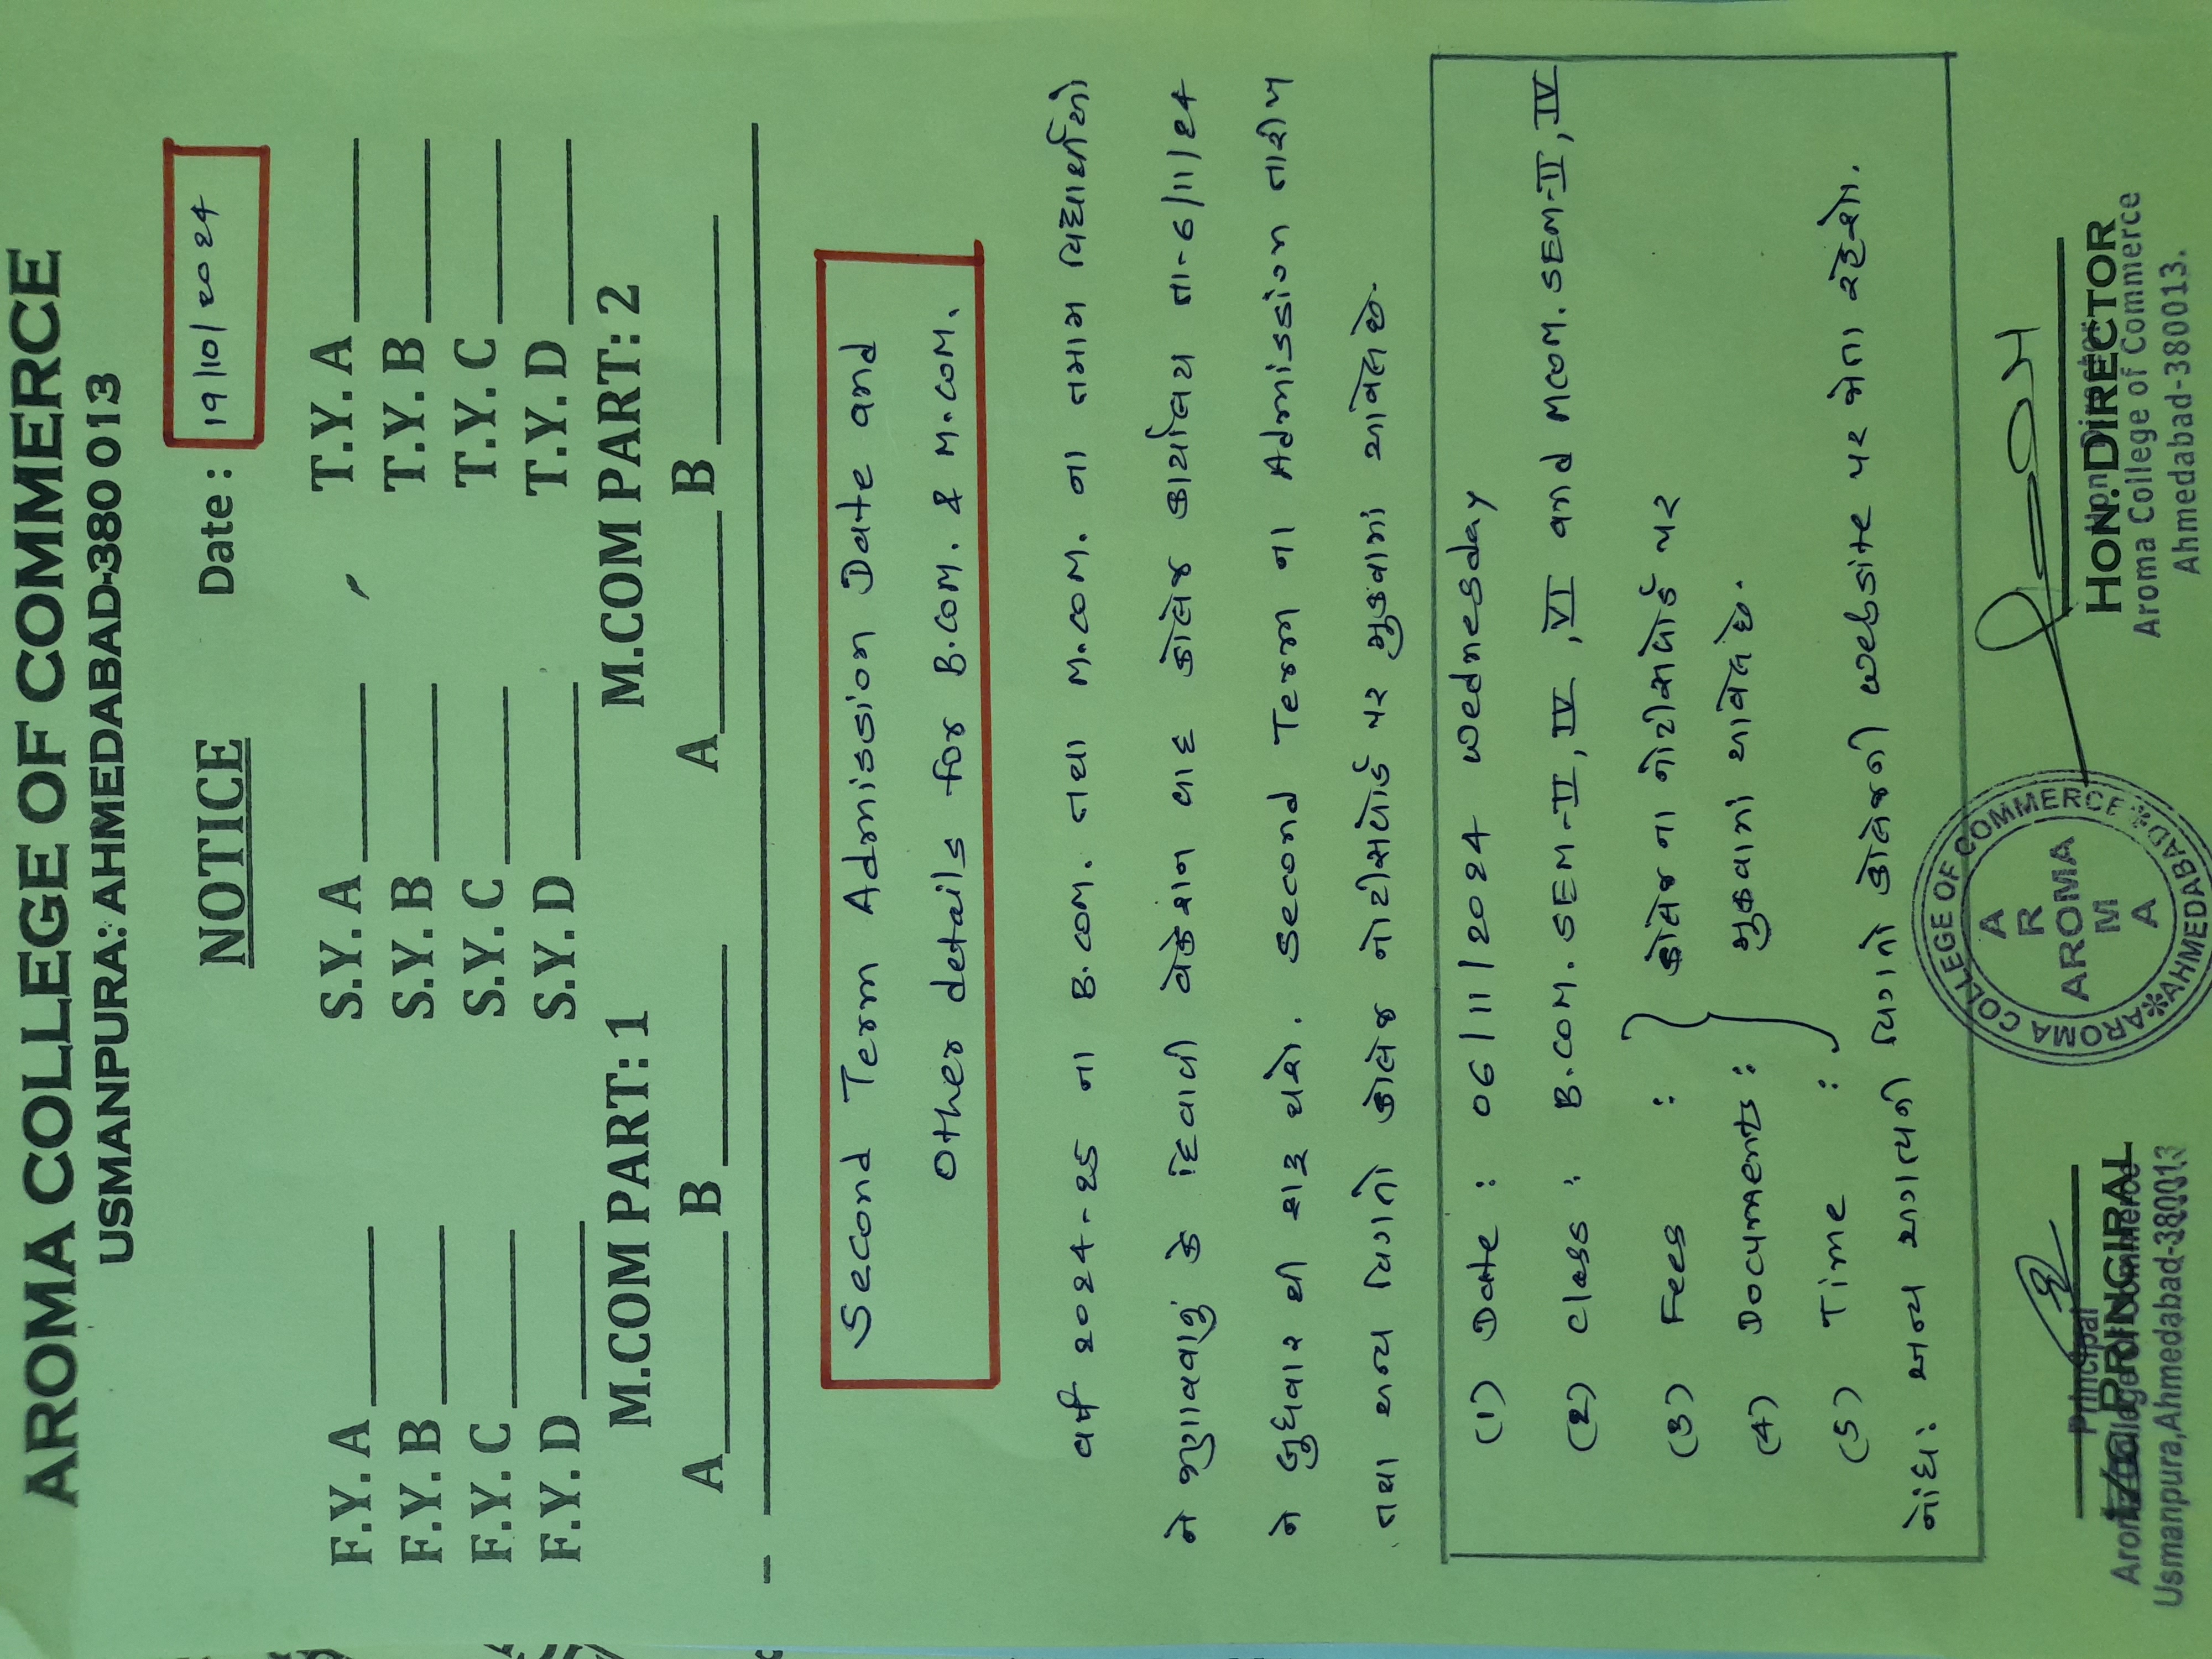 AROMA COLLEGE OF COMMERCE
USMANPURA: AHMEDABAD-380 013
NOTICE Date : 19/10/2024
F.Y. A S.Y. A T.Y. A
F.Y. B S.Y. B T.Y. B
F.Y. C S.Y. C T.Y. C
F.Y. D S.Y. D T.Y. D
M.COM PART: 1 M.COM PART: 2
A B A B
Second Term Admission Date and
Other details for B.COM. & M.COM.
વર્ષ ૨૦૨૪-૨૫ ના B.COM. તથા M.COM. ના તમામ વિદ્યાર્થીઓ
ને જણાવવાનું કે દિવાળી વેકેશન બાદ કોલેજ કાર્યાલય તા-૬/૧૧/૨૪
ને બુધવાર થી શરૂ થશે. Second Term ના Admission તારીખ
તથા અન્ય વિગતો કોલેજ નોટીસબોર્ડ પર મુકવામાં આવેલ છે.
(1) Date : 06/11/2024 Wednesday
(2) Class : B.COM. SEM-II, IV, VI and MCOM. SEM-II, IV
(3) Fees : કોલેજ ના નોટીસબોર્ડ પર
(4) Documents : મુકવામાં આવેલ છે.
(5) Time :
નોંધ: અન્ય અગત્યની વિગતો કોલેજની website પર જોતા રહેશો.
AROMA COLLEGE OF COMMERCE * AHMEDABAD *
A
R
AROMA
M
A
I/c PRINCIPAL HON. DIRECTOR
Principal
Aroma College of Commerce
Usmanpura, Ahmedabad-380013
Hon. Director
Aroma College of Commerce
Ahmedabad-380013.